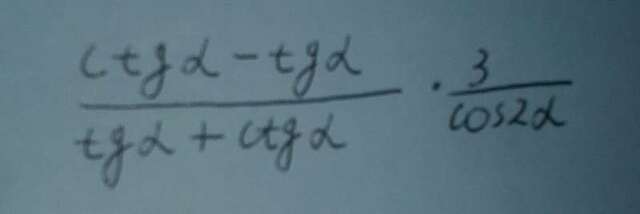 ctgα - tgα / tgα + ctgα · 3 / cos2α